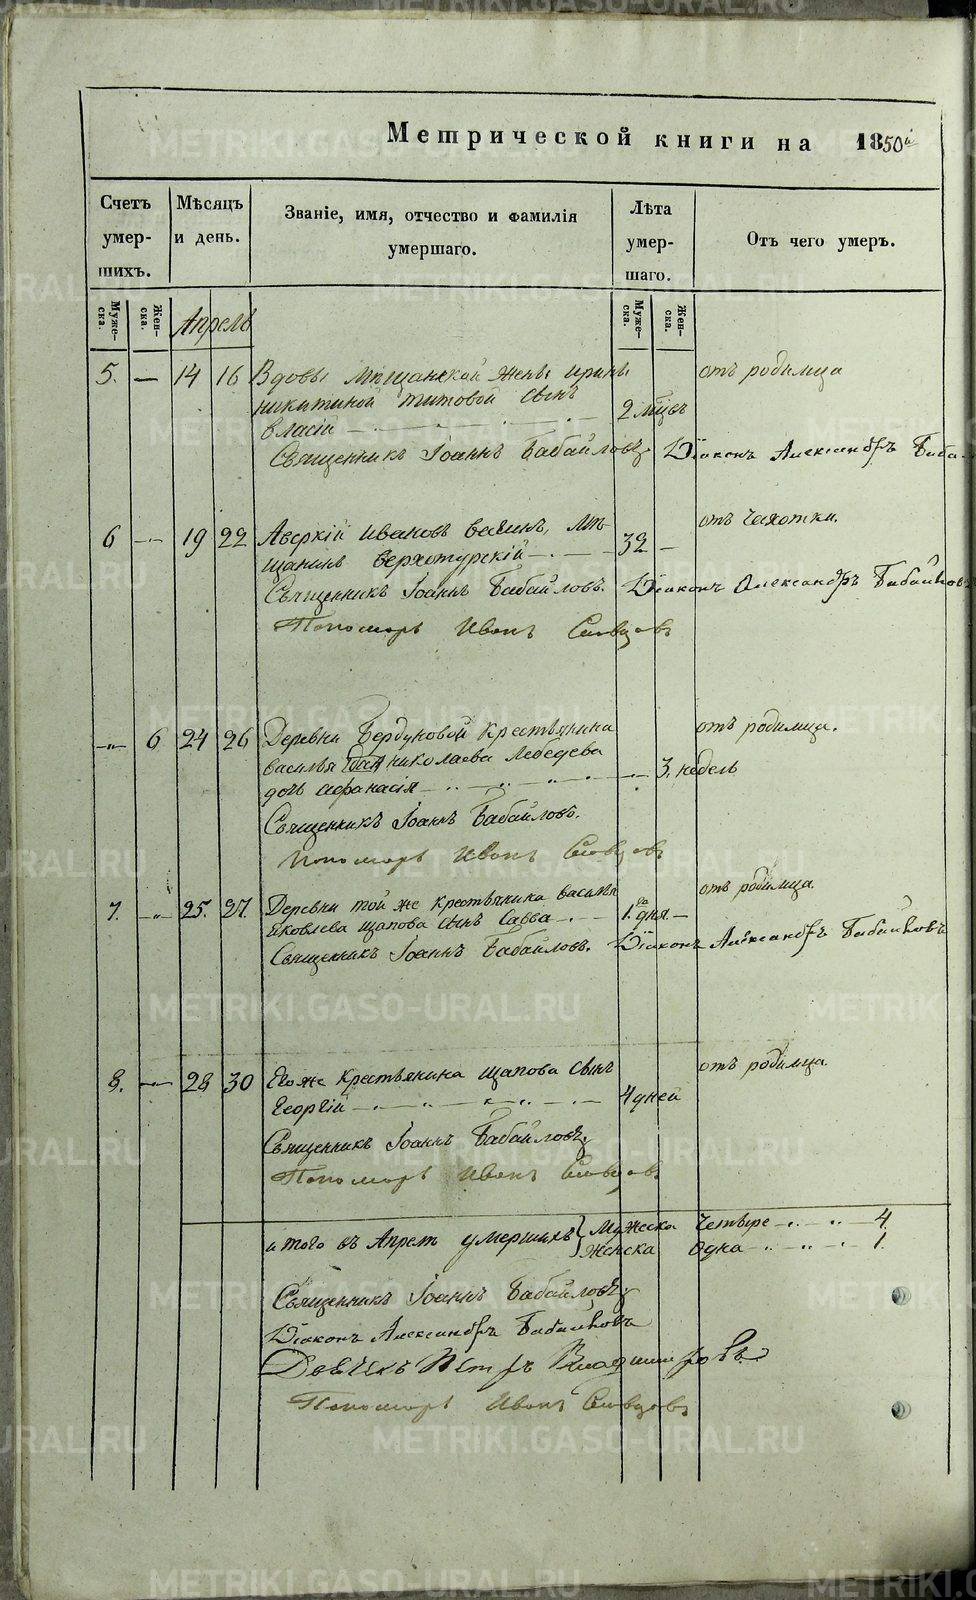 Метрической книги на 1850й
Счетъ умер-шихъ.
Мѣсяцъ и день.
Званіе, имя, отчество и фамилія умершаго.
Лѣта умер-шаго.
Отъ чего умеръ.
Муже-ска. Жен-ска. Апрель Муже-ска. Жен-ска.
5. — 14 16 Вдовы мѣщанской жены ирины отъ родимца
никитиной титовой сынъ 2 мѣсъ
власій
Священникъ Іоаннъ Бабайловъ Діаконъ Александръ
6 — 19 22 Аверкій ивановъ мѣ- 32 — отъ чахотки.
щанинъ верхотурскій
Священникъ Іоаннъ Бабайловъ. Діаконъ Александръ Бабайловъ
Пономарь Иванъ Словцовъ
— 6 24 26 Деревни Бердуновой крестьянина отъ родимца.
василья николаева Лебедева 3. недель
дочь афанасія
Священникъ Іоаннъ Бабайловъ.
Пономарь Иванъ Словцовъ
7. — 25. 27. Деревни той же крестьянина василья отъ родимца.
яковлева щапова сынъ Савва 1. дня —
Священникъ Іоаннъ Бабайловъ. Діаконъ Александръ Бабайловъ
8. — 28 30 Его же крестьянина щапова сынъ отъ родимца.
Георгій 4 дней
Священникъ Іоаннъ Бабайловъ
Пономарь Иванъ Словцовъ
итого въ Апреле умершихъ Мужеска четыре 4.
Женска одна 1.
Священникъ Іоаннъ Бабайловъ
Діаконъ Александръ Бабайловъ
Дьячекъ Петръ Владимировъ
Пономарь Иванъ Словцовъ
METRIKI.GASO-URAL.RU